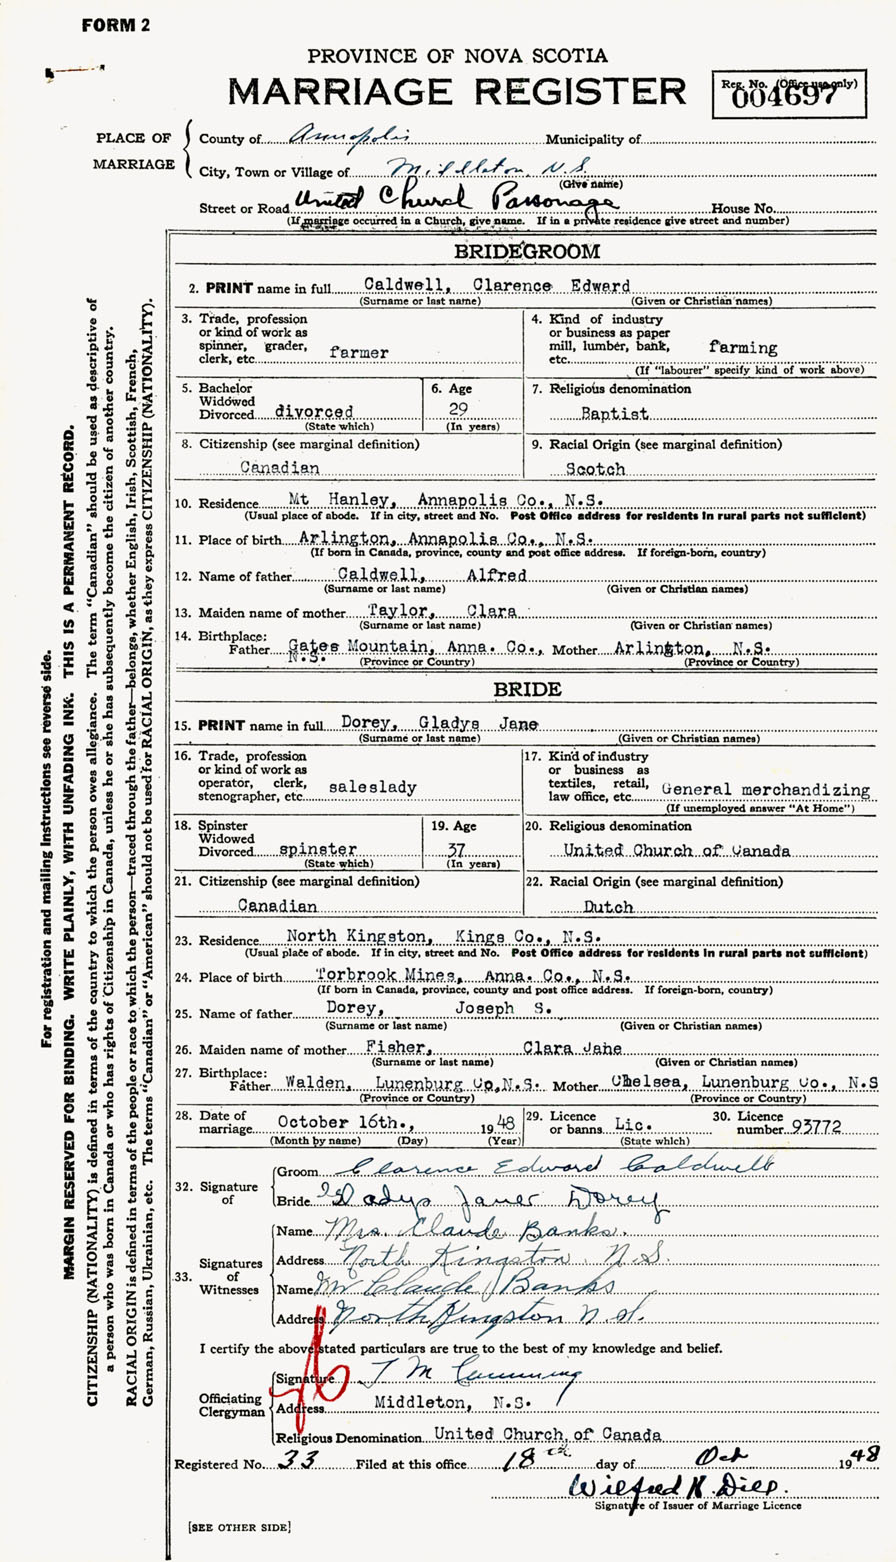 FORM 2
PROVINCE OF NOVA SCOTIA
MARRIAGE REGISTER
Reg. No. (Office use only)
004697
PLACE OF MARRIAGE
County of Annapolis Municipality of
City, Town or Village of Middleton, N.S.
(Give name)
Street or Road United Church Parsonage House No.
(If marriage occurred in a Church, give name. If in a private residence give street and number)
BRIDEGROOM
2. PRINT name in full Caldwell, Clarence Edward
(Surname or last name) (Given or Christian names)
3. Trade, profession
or kind of work as
spinner, grader,
clerk, etc. farmer
4. Kind of industry
or business as paper
mill, lumber, bank,
etc. farming
(If "labourer" specify kind of work above)
5. Bachelor
Widowed
Divorced divorced
(State which)
6. Age
29
(In years)
7. Religious denomination
Baptist
8. Citizenship (see marginal definition)
Canadian
9. Racial Origin (see marginal definition)
Scotch
10. Residence Mt Hanley, Annapolis Co., N.S.
(Usual place of abode. If in city, street and No. Post Office address for residents in rural parts not sufficient)
11. Place of birth Arlington, Annapolis Co., N.S.
(If born in Canada, province, county and post office address. If foreign-born, country)
12. Name of father Caldwell, Alfred
(Surname or last name) (Given or Christian names)
13. Maiden name of mother Taylor, Clara
(Surname or last name) (Given or Christian names)
14. Birthplace:
Father Gates Mountain, Anna. Co., Mother Arlington, N.S.
N.S. (Province or Country) (Province or Country)
BRIDE
15. PRINT name in full Dorey, Gladys Jane
(Surname or last name) (Given or Christian names)
16. Trade, profession
or kind of work as
operator, clerk,
stenographer, etc. saleslady
17. Kind of industry
or business as
textiles, retail,
law office, etc. General merchandizing
(If unemployed answer "At Home")
18. Spinster
Widowed
Divorced spinster
(State which)
19. Age
37
(In years)
20. Religious denomination
United Church of Canada
21. Citizenship (see marginal definition)
Canadian
22. Racial Origin (see marginal definition)
Dutch
23. Residence North Kingston, Kings Co., N.S.
(Usual place of abode. If in city, street and No. Post Office address for residents in rural parts not sufficient)
24. Place of birth Torbrook Mines, Anna. Co., N.S.
(If born in Canada, province, county and post office address. If foreign-born, country)
25. Name of father Dorey, Joseph S.
(Surname or last name) (Given or Christian names)
26. Maiden name of mother Fisher, Clara Jane
(Surname or last name) (Given or Christian names)
27. Birthplace:
Father Walden, Lunenburg Co, N.S. Mother Chelsea, Lunenburg Co., N.S
(Province or Country) (Province or Country)
28. Date of
marriage October 16th., 1948
(Month by name) (Day) (Year)
29. Licence
or banns Lic.
(State which)
30. Licence
number 93772
32. Signature of
Groom Clarence Edward Caldwell
Bride Gladys Dorey
33. Signatures of Witnesses
Name Mrs. Claude Banks.
Address North Kingston N.S.
Name Mr Claude Banks
Address North Kingston N.S.
I certify the above stated particulars are true to the best of my knowledge and belief.
Officiating Clergyman
Signature T M Cumming
Address Middleton, N.S.
Religious Denomination United Church of Canada
Registered No. 33 Filed at this office 18th day of Oct 1948
Wilfred
Signature of Issuer of Marriage Licence
[SEE OTHER SIDE]
For registration and mailing instructions see reverse side.
MARGIN RESERVED FOR BINDING. WRITE PLAINLY, WITH UNFADING INK. THIS IS A PERMANENT RECORD.
CITIZENSHIP (NATIONALITY) is defined in terms of the country to which the person owes allegiance. The term "Canadian" should be used as descriptive of
a person who was born in Canada or who has rights of Citizenship in Canada, unless he or she has subsequently become the citizen of another country.
RACIAL ORIGIN is defined in terms of the people or race to which the person—traced through the father—belongs, whether English, Irish, Scottish, French,
German, Russian, Ukrainian, etc. The terms "Canadian" or "American" should not be used for RACIAL ORIGIN, as they express CITIZENSHIP (NATIONALITY).